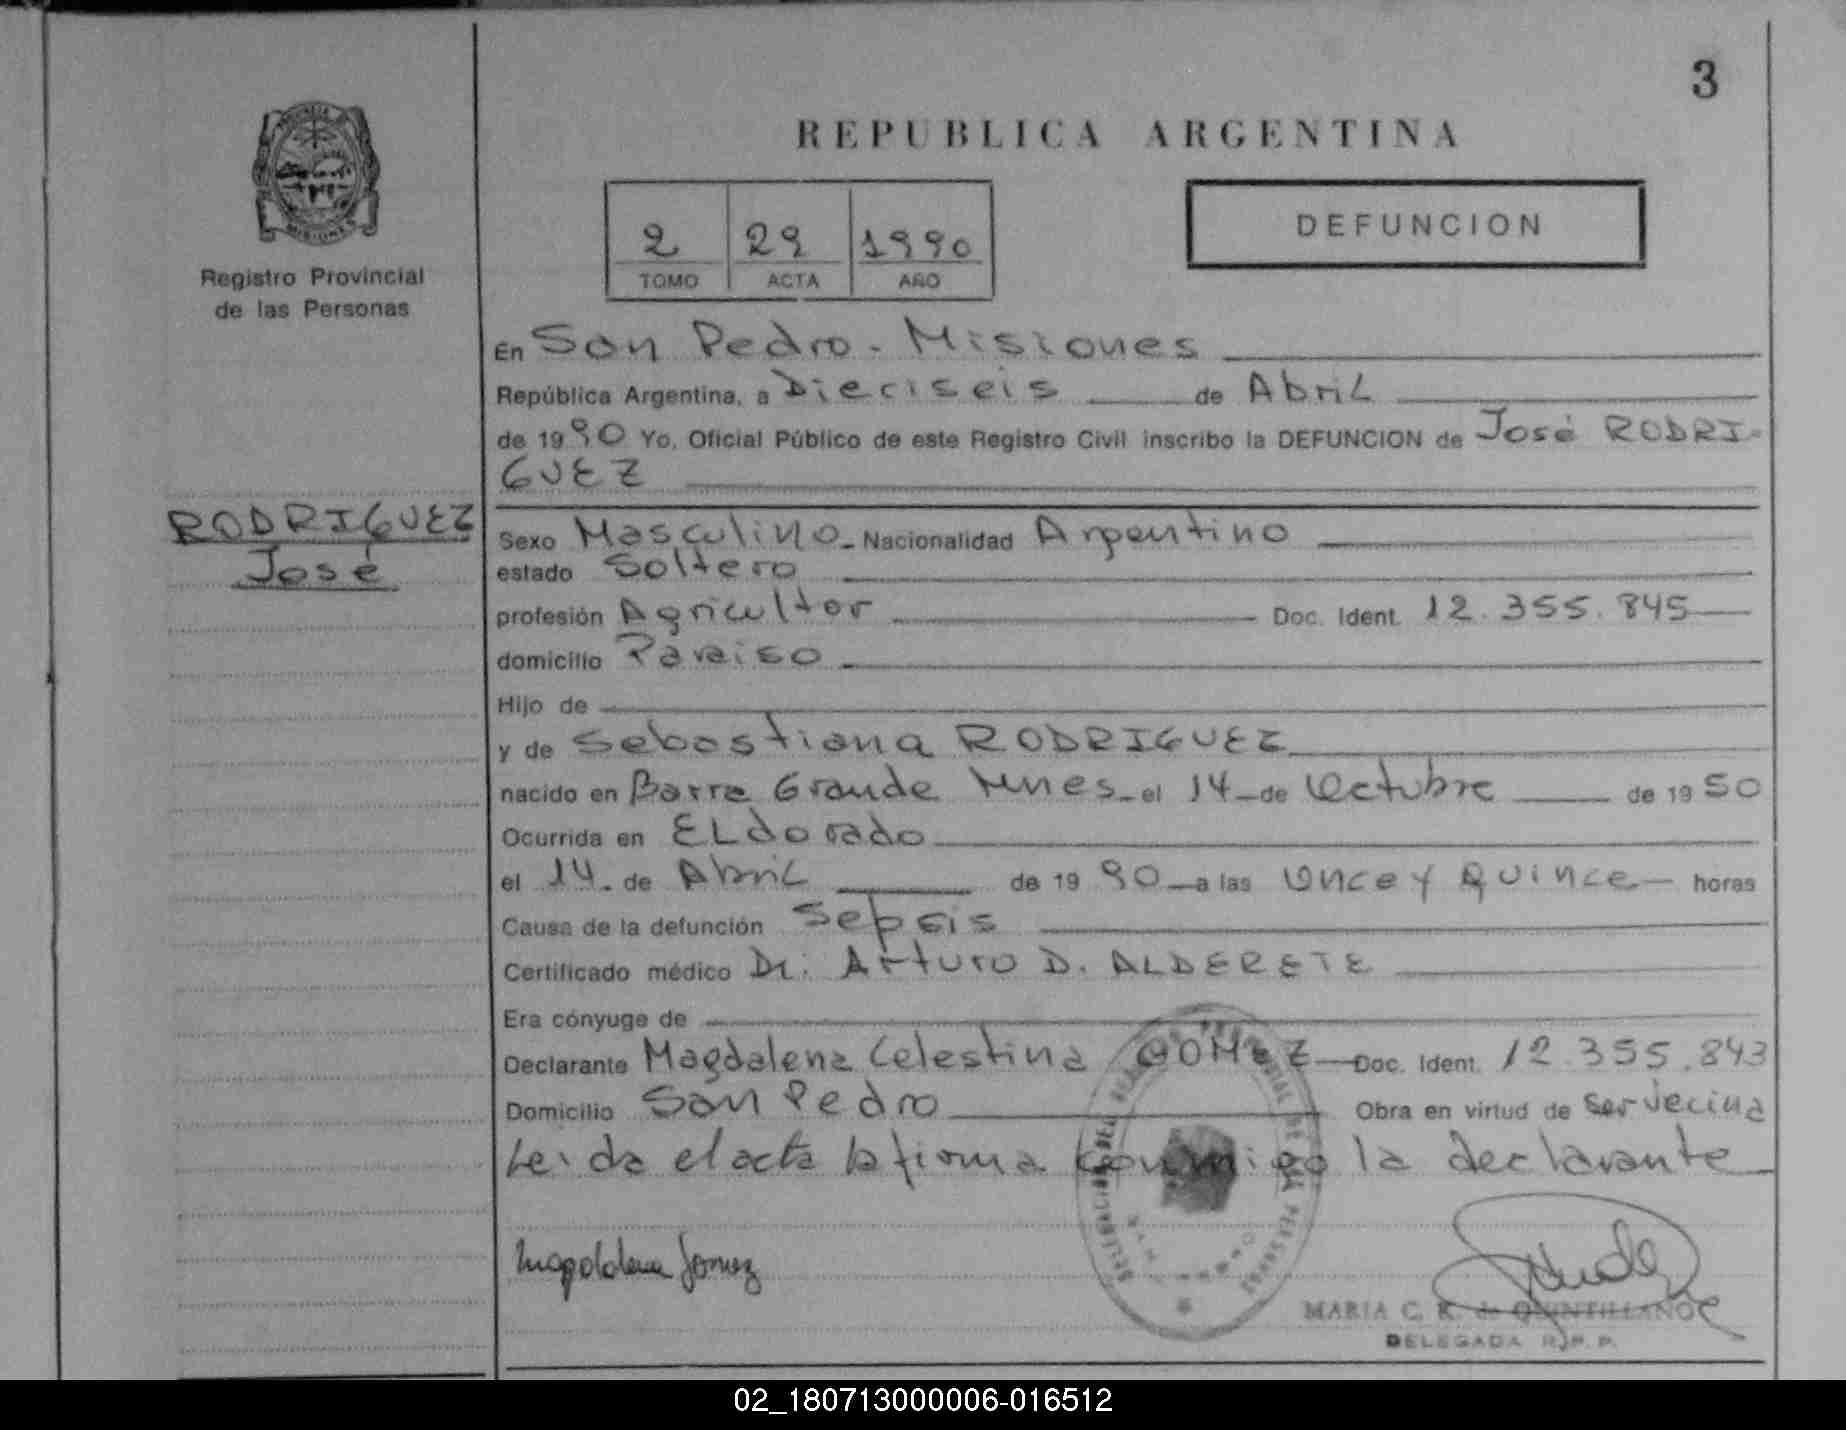 3
REPUBLICA ARGENTINA
PROVINCIA
MISIONES
Registro Provincial
de las Personas
2 29 1990
TOMO ACTA AÑO
DEFUNCION
En San Pedro - Misiones
República Argentina, a Dieciseis de Abril
de 1990 Yo, Oficial Público de este Registro Civil inscribo la DEFUNCION de José RODRI-
GUEZ
RODRIGUEZ
José
Sexo Masculino - Nacionalidad Argentino
estado Soltero
profesión Agricultor Doc. Ident. 12.355.845
domicilio Paraiso
Hijo de
y de Sebastiana RODRIGUEZ
nacido en Barra Grande Mnes - el 14 - de Octubre de 1950
Ocurrida en ELdorado
el 14 - de Abril de 1990 - a las Once y Quince - horas
Causa de la defunción Sepsis
Certificado médico Dr. Arturo D. ALDERETE
Era cónyuge de
Declarante Magdalena Celestina GOMEZ - Doc. Ident. 12.355.843
Domicilio San Pedro Obra en virtud de ser vecina
Leida el acta la firma conmigo la declarante
Magdalena Gomez
MARIA C. R. de QUINTILLANO
DELEGADA R.P.P.
02_180713000006-016512